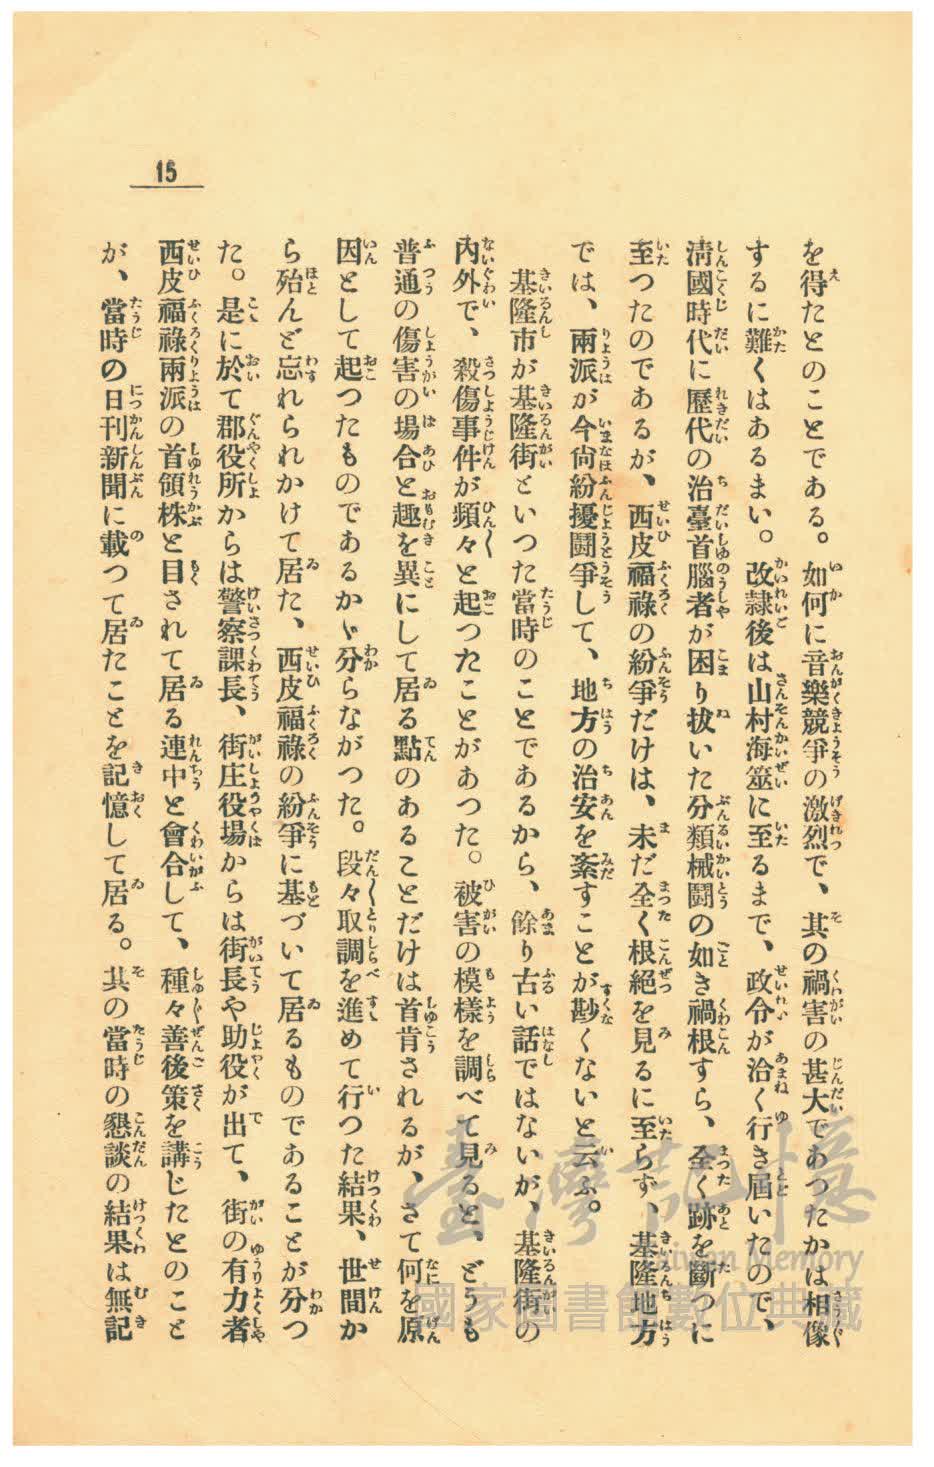 15
を得たとのことである。如何に音樂競爭の激烈で、其の禍害の甚大であつたかは相像
するに難くはあるまい。改隷後は山村海筮に至るまで、政令が洽く行き屆いたので、
淸國時代に歷代の治臺首腦者が困り拔いた分類械鬪の如き禍根すら、全く跡を斷つに
至つたのであるが、西皮福祿の紛爭だけは、未だ全く根絕を見るに至らず、基隆地方
では、兩派が今尙紛擾鬪爭して、地方の治安を紊すことが尠くないと云ふ。
基隆市が基隆街といつた當時のことであるから、餘り古い話ではないが、基隆街の
內外で、殺傷事件が頻々と起つたことがあつた。被害の模樣を調べて見ると、どうも
普通の傷害の場合と趣を異にして居る點のあることだけは首肯されるが、さて何を原
因として起つたものであるかゞ分らなかつた。段々取調を進めて行つた結果、世間か
ら殆んど忘れられかけて居た、西皮福祿の紛爭に基づいて居るものであることが分つ
た。是に於て郡役所からは警察課長、街庄役場からは街長や助役が出て、街の有力者
西皮福祿兩派の首領株と目されて居る連中と會合して、種々善後策を講じたとのこと
が、當時の日刊新聞に載つて居たことを記憶して居る。其の當時の懇談の結果は無記
臺灣記憶
Taiwan Memory
國家圖書館數位典藏